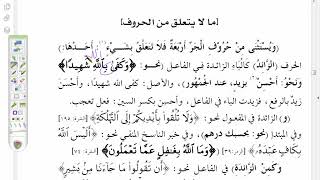 [ما لا يتعلق من الحروف]
(ويُسْتَثْنَى مِنْ حُرُوْفِ الْجَرِّ أَرْبَعَةٌ فَلَا تَتَعَلَّقُ بِشَيْءٍ): أَحَدُهَا:
الحرف (الزَّائدُ) كالبَـاءِ الزائدة في الفاعـل (نحـو: ﴿وَكَفَىٰ بِٱللَّهِ شَهِيدًا﴾
وَنَحْوُ: أَحْسَنُ بزيدٍ، عند الجُمْهُورِ)، والأصل: كفى الله شهيدًا، وأحسَن
زيدٌ بالرفع، فزيدت الباء في الفاعل، وأحسِن بكسر السين: فعل تعجب.
(و) الزائدة في المفعول نحو: ﴿وَلَا تُلْقُوا۟ بِأَيْدِيكُمْ إِلَى ٱلتَّهْلُكَةِ﴾ [البقرة: ١٩٥]
وفي المبتدإ (نحو: بحسبك درهم)، وفي خبر الناسخ المنفي نحو: ﴿أَلَيْسَ ٱللَّهُ
بِكَافٍ عَبْدَهُۥ﴾ [الزمر: ٣٦] ﴿وَمَا ٱللَّهُ بِغَٰفِلٍ عَمَّا تَعْمَلُونَ﴾ [البقرة: ٧٤]
(وكمن الزائدة) في الفاعل نحو: ﴿أَن تَقُولُوا۟ مَا جَآءَنَا مِنۢ بَشِيرٍ﴾